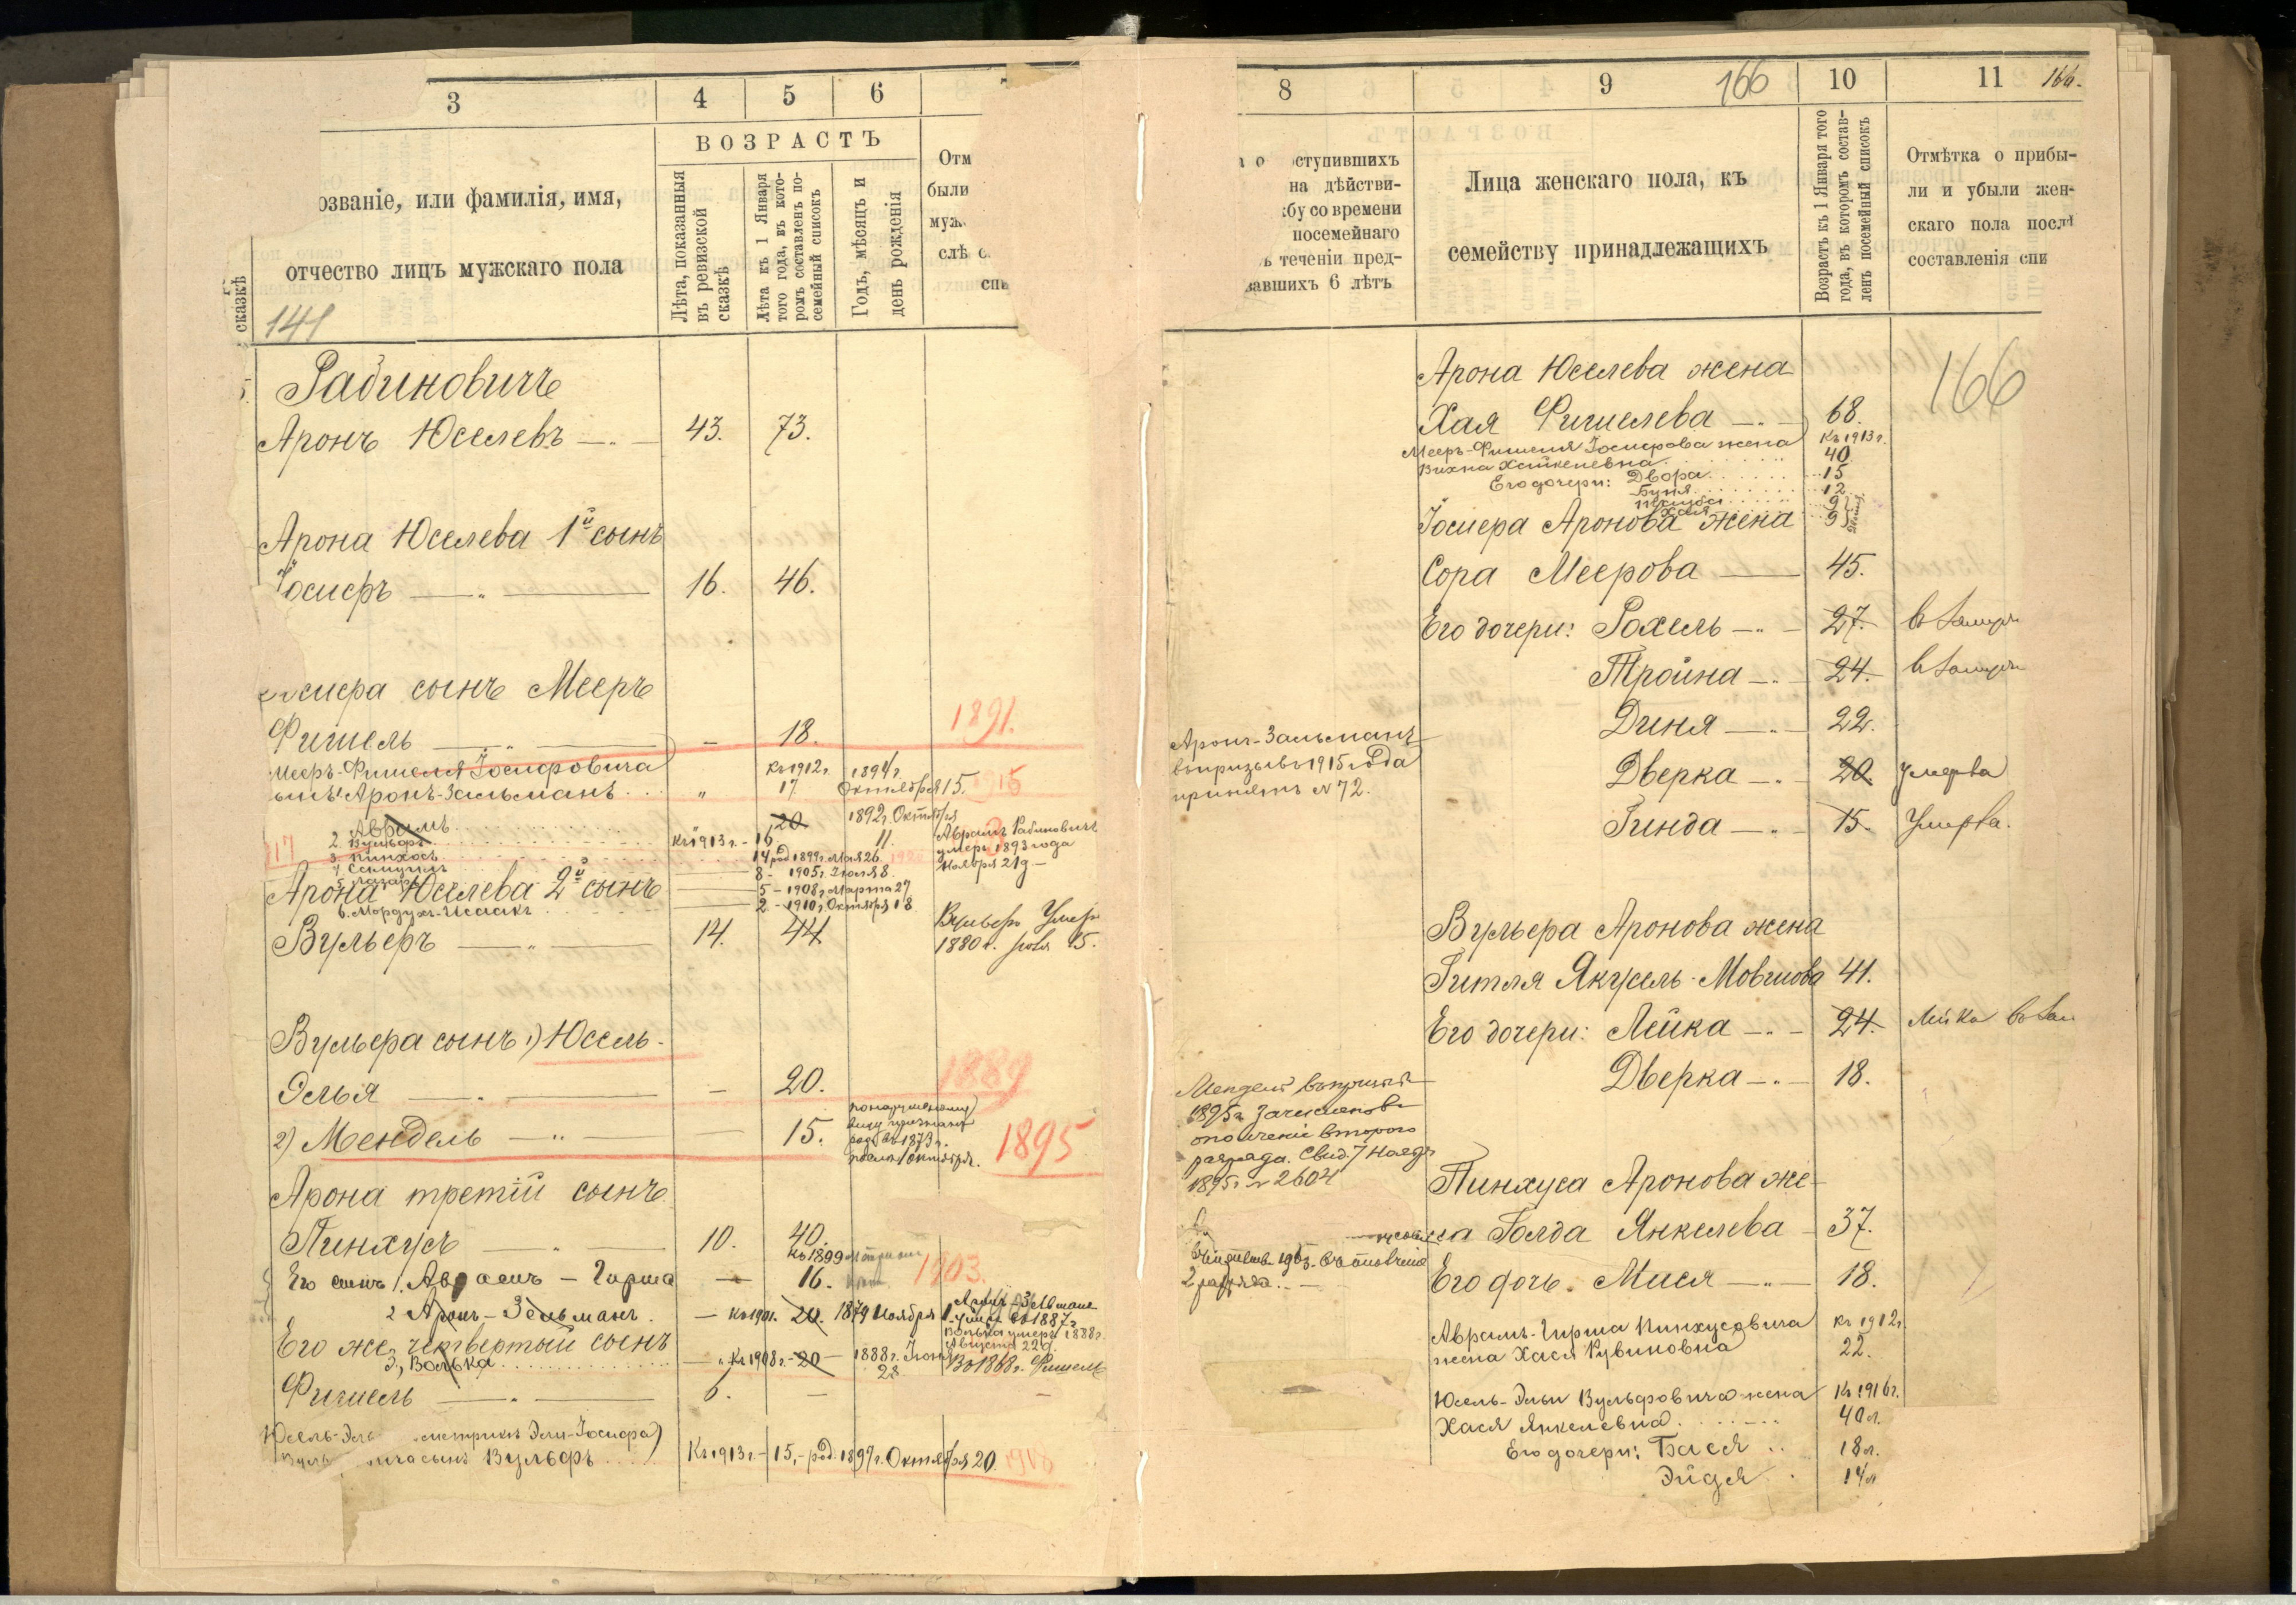 3 4 5 6
ВОЗРАСТЪ
озваніе, или фамилія, имя,
отчество лицъ мужскаго пола
сказкѣ
Лѣта, показанныя
въ ревизской
сказкѣ
Лѣта къ 1 Января
того года, въ кото-
ромъ составленъ по-
семейный списокъ
Годъ, мѣсяцъ и
день рожденія
Отм
были
муж
слѣ с
спи
141
Рабиновичъ
Аронъ Юселевъ 43. 73.
Арона Юселева 1й сынъ
Іосифъ 16. 46.
сифа сынъ Мееръ
Фишель — 18. 1891.
Мееръ-Фишеля Іосифовича Къ 1912 г. 1894 г.
Аронъ-Зальманъ 17 Октября 15. 1915
2. Абрамъ 20 1892 г. Октября 11. Абрамъ Рабиновичъ
умеръ 1893 года
Ноября 21 д.
2. Вульфъ Къ 1913 г. - 16
3. Пинхосъ 14 род 1899 г. Мая 26.
4. Семуилъ 8 - 1905 г. Іюля 8.
5. Лазарь 5 - 1908 г. Марта 27
Арона Юселева 2й сынъ
6. Мордухъ-Исаакъ 2 - 1910 г. Октября 18
Вульфъ 14. 44 Вульфъ Умер
1880 г. 15.
Вульфа сынъ 1) Юсель-
Элья — 20. 1889
2) Мендель 15. по наружному
виду признанъ
род. въ 1873 г.
после 1 октября. 1895
Арона третій сынъ
Пинхусъ 10. 40.
Къ 1899
Его сынъ 1. Абрамъ-Гирша — 16. 1903.
2 Аронъ-Зельманъ. — Къ 1901. 20. 1879 Ноября 1.
умер въ 1887 г.
Его же четвертый сынъ
Волька умеръ 1888 г.
Августа 22 д.
3, Волька Къ 1908 г. - 20 - 1888 г. 28
Фишель 6. — Во 1868 г. Фишель
Юсель-Эль метрикѣ Эли-Іосифа)
ича сынъ Вульфъ Къ 1913 г. - 15, - род. 1897 г. Октября 20. 1918
8 9 166 10 11 166.
ступившихъ
на дѣйстви-
бу со времени
посемейнаго
ъ теченіи пред-
авшихъ 6 лѣтъ
Лица женскаго пола, къ
семейству принадлежащихъ
Возрастъ къ 1 Января того
года, въ которомъ состав-
ленъ посемейный списокъ
Отмѣтка о прибы-
ли и убыли жен-
скаго пола послѣ
составленія спи
166
Арона Юселева жена
Хая Фишелева 68.
Мееръ-Фишеля Іосифова жена Къ 1913 г.
Вихна Хайкелевна 40
Его дочери: Двора 15
Буня 12
9
Хая 9
Іосифа Аронова жена
Сора Меерова 45.
Его дочери: Рохель 27. в Замуж
Тройна 24. в Замуж
Диня 22.
Дверка 20. умерла
Гинда 15. Умерла.
Аронъ-Зальманъ
въ призывъ 1915 года
принятъ № 72.
Вульфа Аронова жена
Гитля Якусель-Мовшова 41.
Его дочери: Лейка 24. Лейка в Зам
Дверка 18.
Мендель въ призывѣ
1895 г. зачисленъ въ
ополченіе второго
разряда. Свид. 7 Нояб
1895 г. № 2604
Пинхуса Аронова же-
на Голда Янкелева 37.
2 разряда.
Его дочь. Мися 18.
Абрамъ-Гирша Пинхусовича Къ 1912 г.
жена Хася Рувиновна 22.
Юсель-Эльи Вульфовича жена Къ 1916 г.
Хася Янкелевна 40 л.
Его дочери: Бася 18 л.
Эйдля 14 л